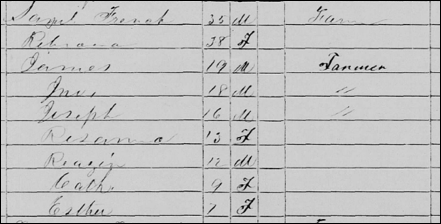 Saml French 35 M Farm
Rebecca 38 F
James 19 M Farmer
18 M "
Joseph 16 M "
Rosanna 13 F
12 M
Cath 9 F
Esther 7 F